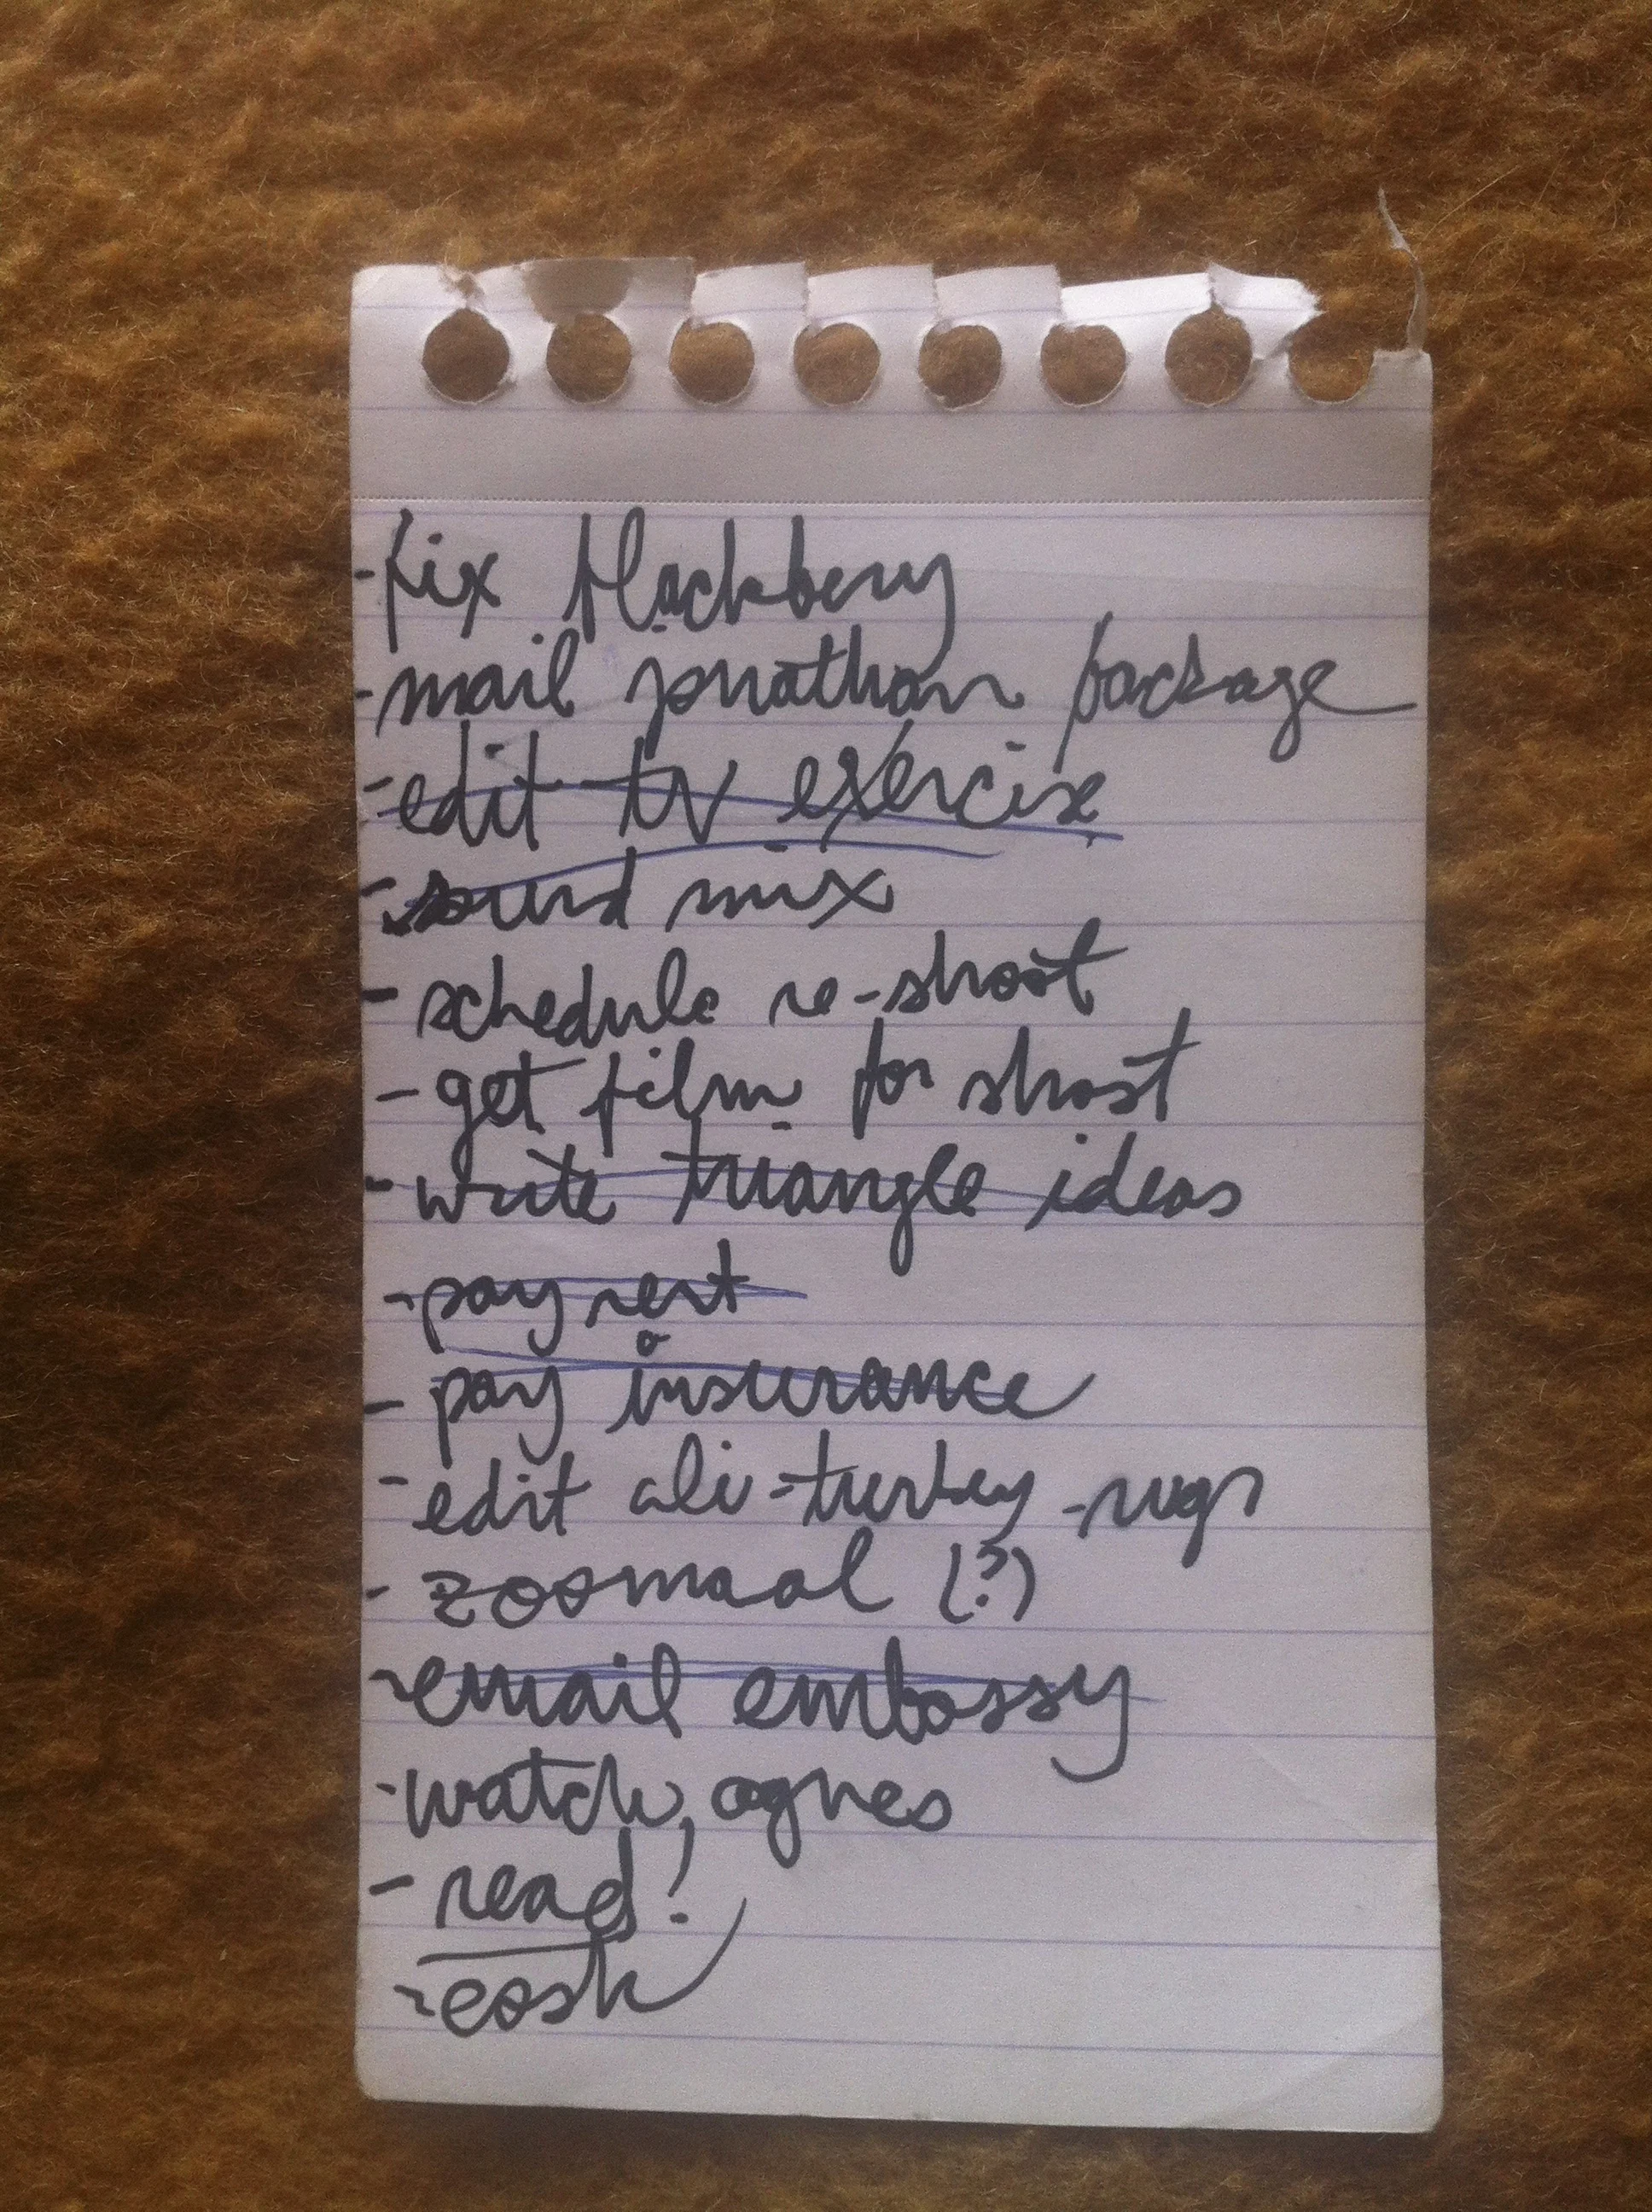 - fix blackberry
- mail jonathan package
- edit tv exercise
- sound mix
- schedule re-shoot
- get film for shoot
- write triangle ideas
- pay rent
- pay insurance
- edit ali-turkey-rugs
- zoomaal (?)
- email embassy
- watch, agnes
- read!
- cash